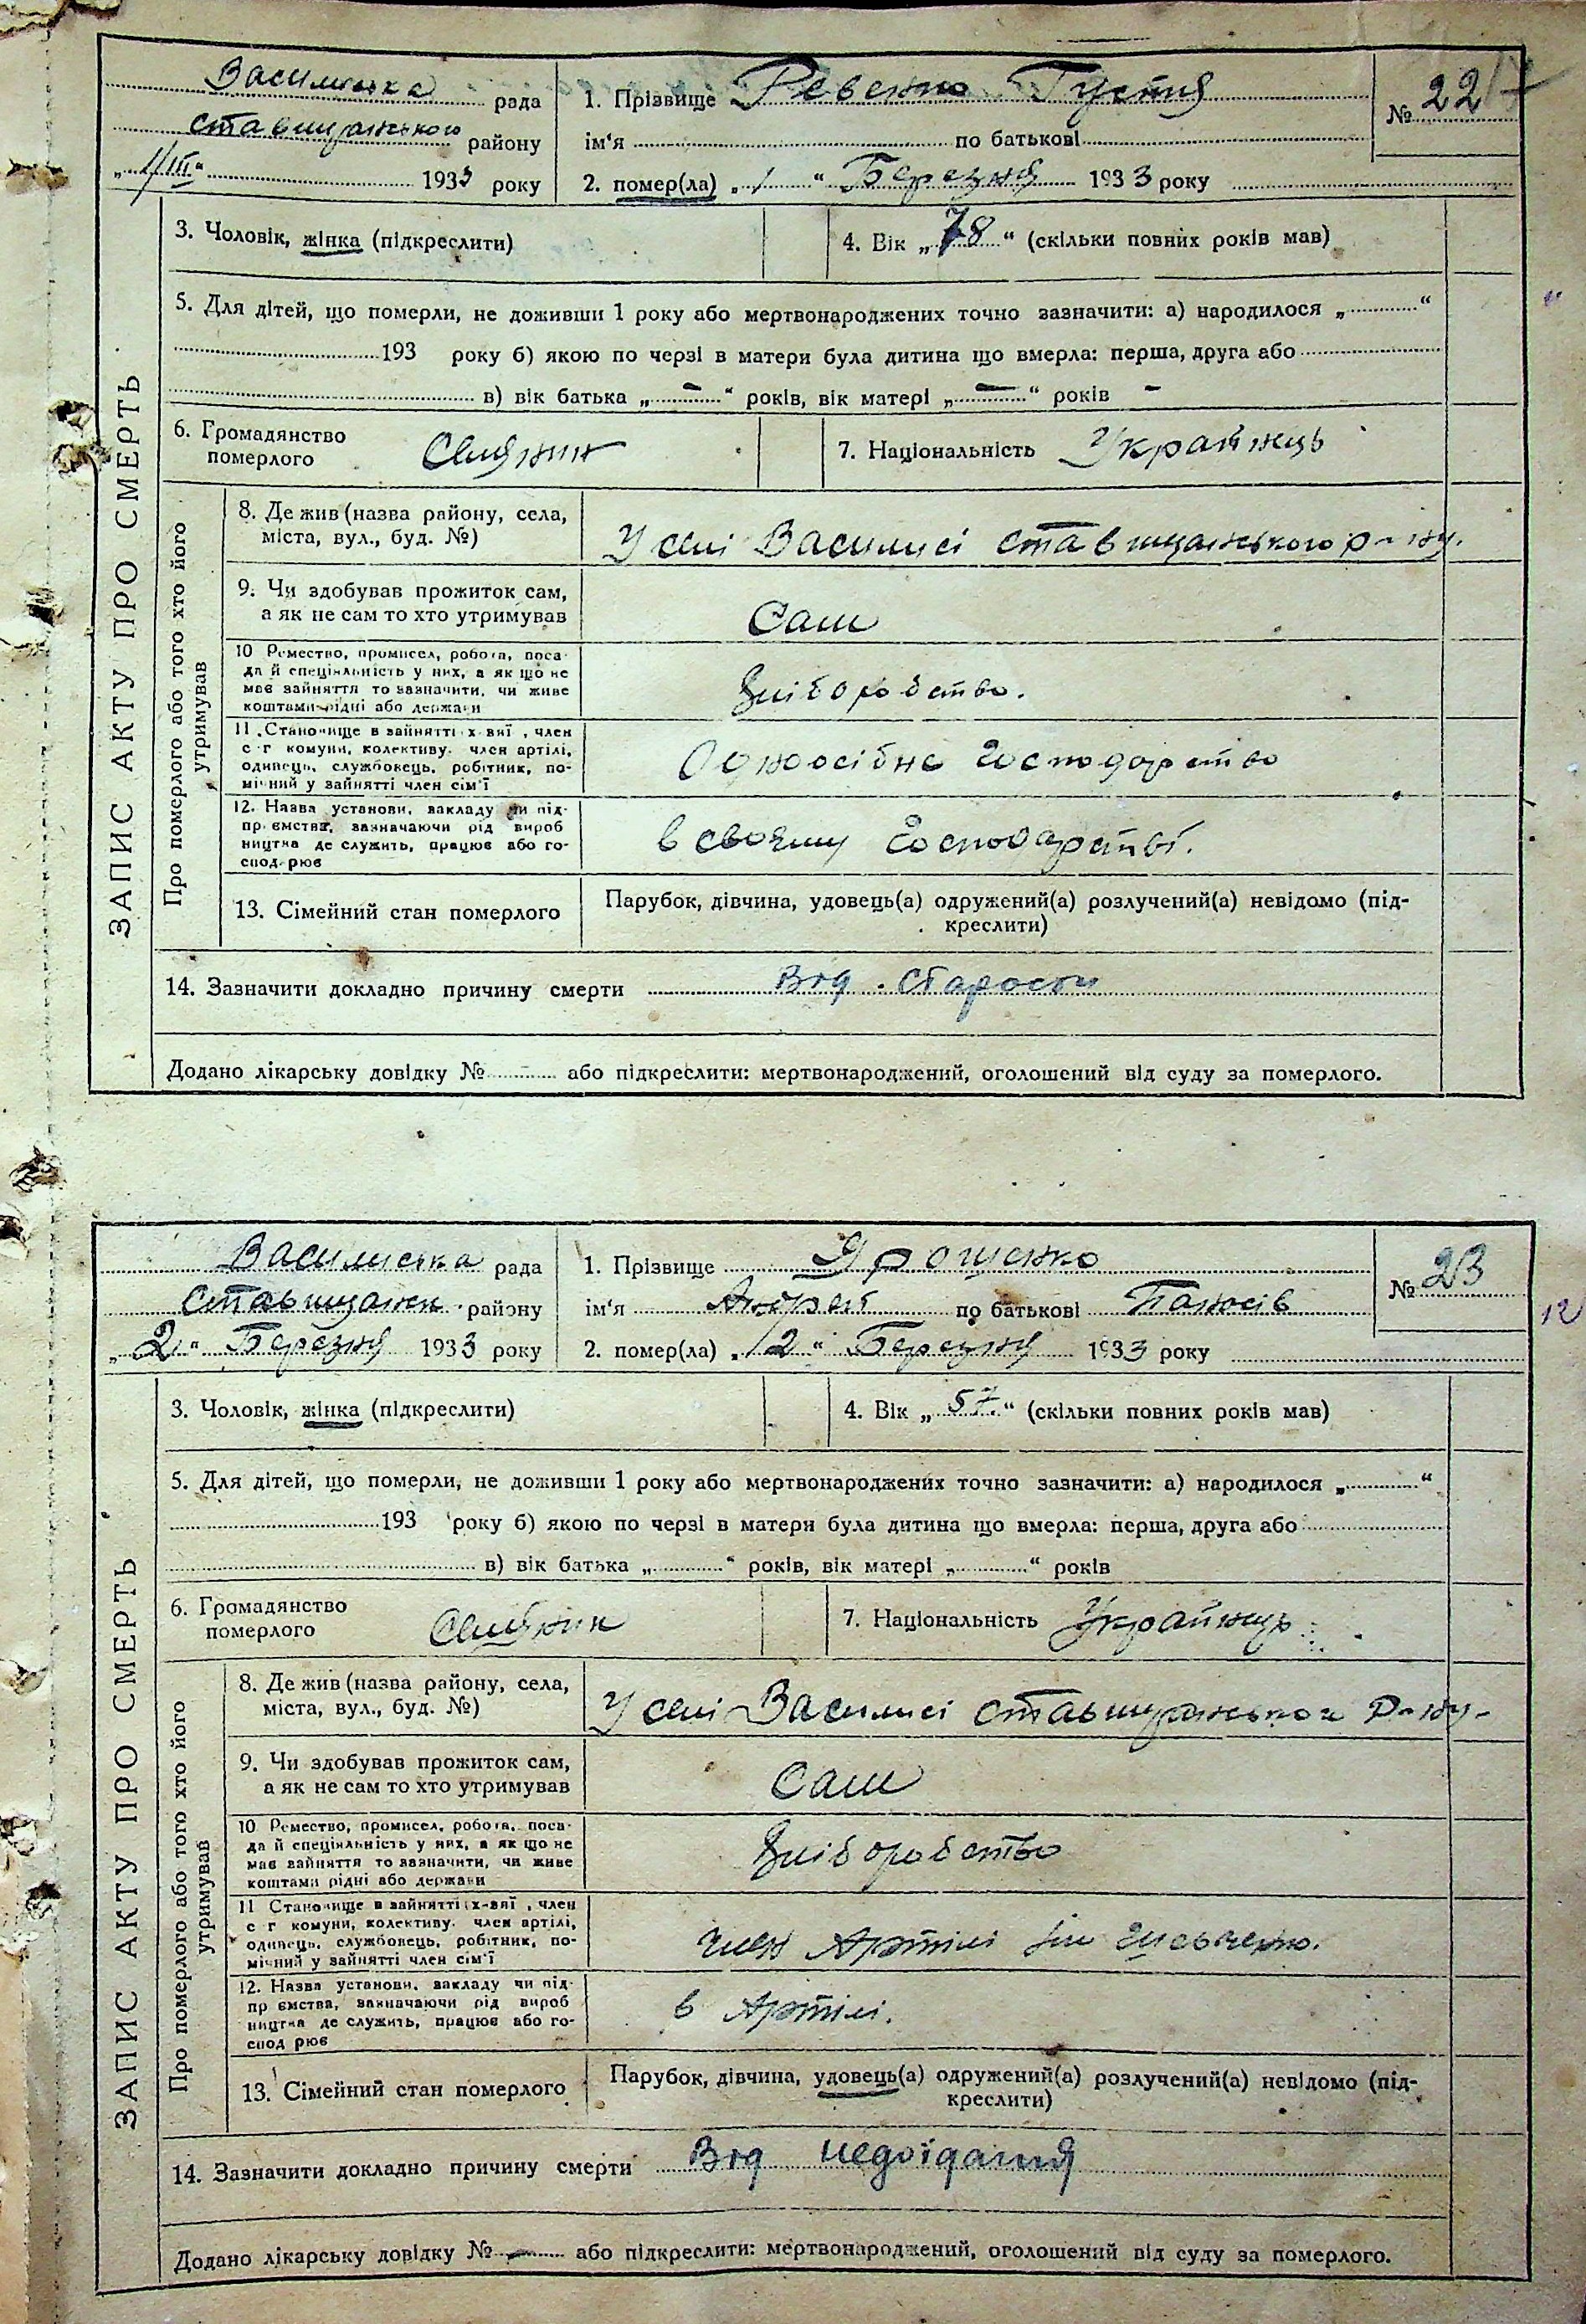 Василиська рада
ставищанського району
„1/III“ 1933 року
1. Прізвище Ревенко Густия
ім'я по батькові
2. помер(ла) „1“ Березня 1933 року
№ 22
3. Чоловік, жінка (підкреслити)
4. Вік „78“ (скільки повних років мав)
5. Для дітей, що померли, не доживши 1 року або мертвонароджених точно зазначити: а) народилося „ “
193 року б) якою по черзі в матери була дитина що вмерла: перша, друга або
в) вік батька „–“ років, вік матері „–“ років –
6. Громадянство
померлого Селянин
7. Національність Українець
ЗАПИС АКТУ ПРО СМЕРТЬ
Про померлого або того хто його
утримував
8. Де жив (назва району, села,
міста, вул., буд. №)
У селі Василисі ставищанського р-ну.
9. Чи здобував прожиток сам,
а як не сам то хто утримував
Сам
10 Ремество, промисел, робота, поса-
да й спеціяльність у них, а як що не
має зайняття то зазначити, чи живе
коштами рідні або держави
Хліборобство.
11. Становище в зайнятті х-вяї, член
с-г комуни, колективу. член артілі,
одинець, службовець, робітник, по-
мічний у зайнятті член сім'ї
Одноосібне господарство
12. Назва установи, закладу чи під-
приємства, зазначаючи рід вироб
ництва де служить, працює або го-
сподарює
в своєму господарстві.
13. Сімейний стан померлого
Парубок, дівчина, удовець(а) одружений(а) розлучений(а) невідомо (під-
креслити)
14. Зазначити докладно причину смерти Від старости
Додано лікарську довідку № або підкреслити: мертвонароджений, оголошений від суду за померлого.
Василиська рада
Ставищанськ району
„2“ Березня 1933 року
1. Прізвище Ярошенко
ім'я Андрей по батькові Панасів
2. помер(ла) „2“ Березня 1933 року
№ 23
12
3. Чоловік, жінка (підкреслити)
4. Вік „57.“ (скільки повних років мав)
5. Для дітей, що померли, не доживши 1 року або мертвонароджених точно зазначити: а) народилося „ “
193 року б) якою по черзі в матери була дитина що вмерла: перша, друга або
в) вік батька „ “ років, вік матері „ “ років
6. Громадянство
померлого Селянин
7. Національність Українець
ЗАПИС АКТУ ПРО СМЕРТЬ
Про померлого або того хто його
утримував
8. Де жив (назва району, села,
міста, вул., буд. №)
У селі Василисі ставищанського р-ну-
9. Чи здобував прожиток сам,
а як не сам то хто утримував
Сам
10 Ремество, промисел, робота, поса-
да й спеціяльність у них, а як що не
має зайняття то зазначити, чи живе
коштами рідні або держави
Хліборобство
11 Становище в зайнятті х-вяї, член
с г комуни, колективу. член артілі,
одинець, службовець, робітник, по-
мічний у зайнятті член сім'ї
член Артілі ім Шевченко.
12. Назва установи, закладу чи під-
приємства, зазначаючи рід вироб
ництва де служить, працює або го-
сподарює
в Артілі.
13. Сімейний стан померлого
Парубок, дівчина, удовець(а) одружений(а) розлучений(а) невідомо (під-
креслити)
14. Зазначити докладно причину смерти Від недоїдання
Додано лікарську довідку №– або підкреслити: мертвонароджений, оголошений від суду за померлого.